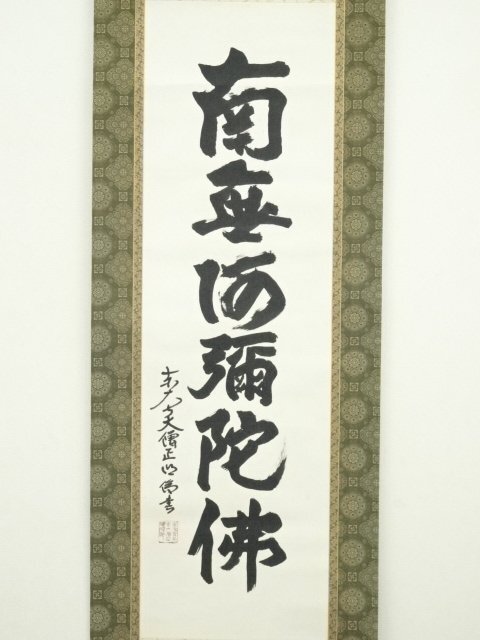 南無阿彌陀佛
大僧正
書